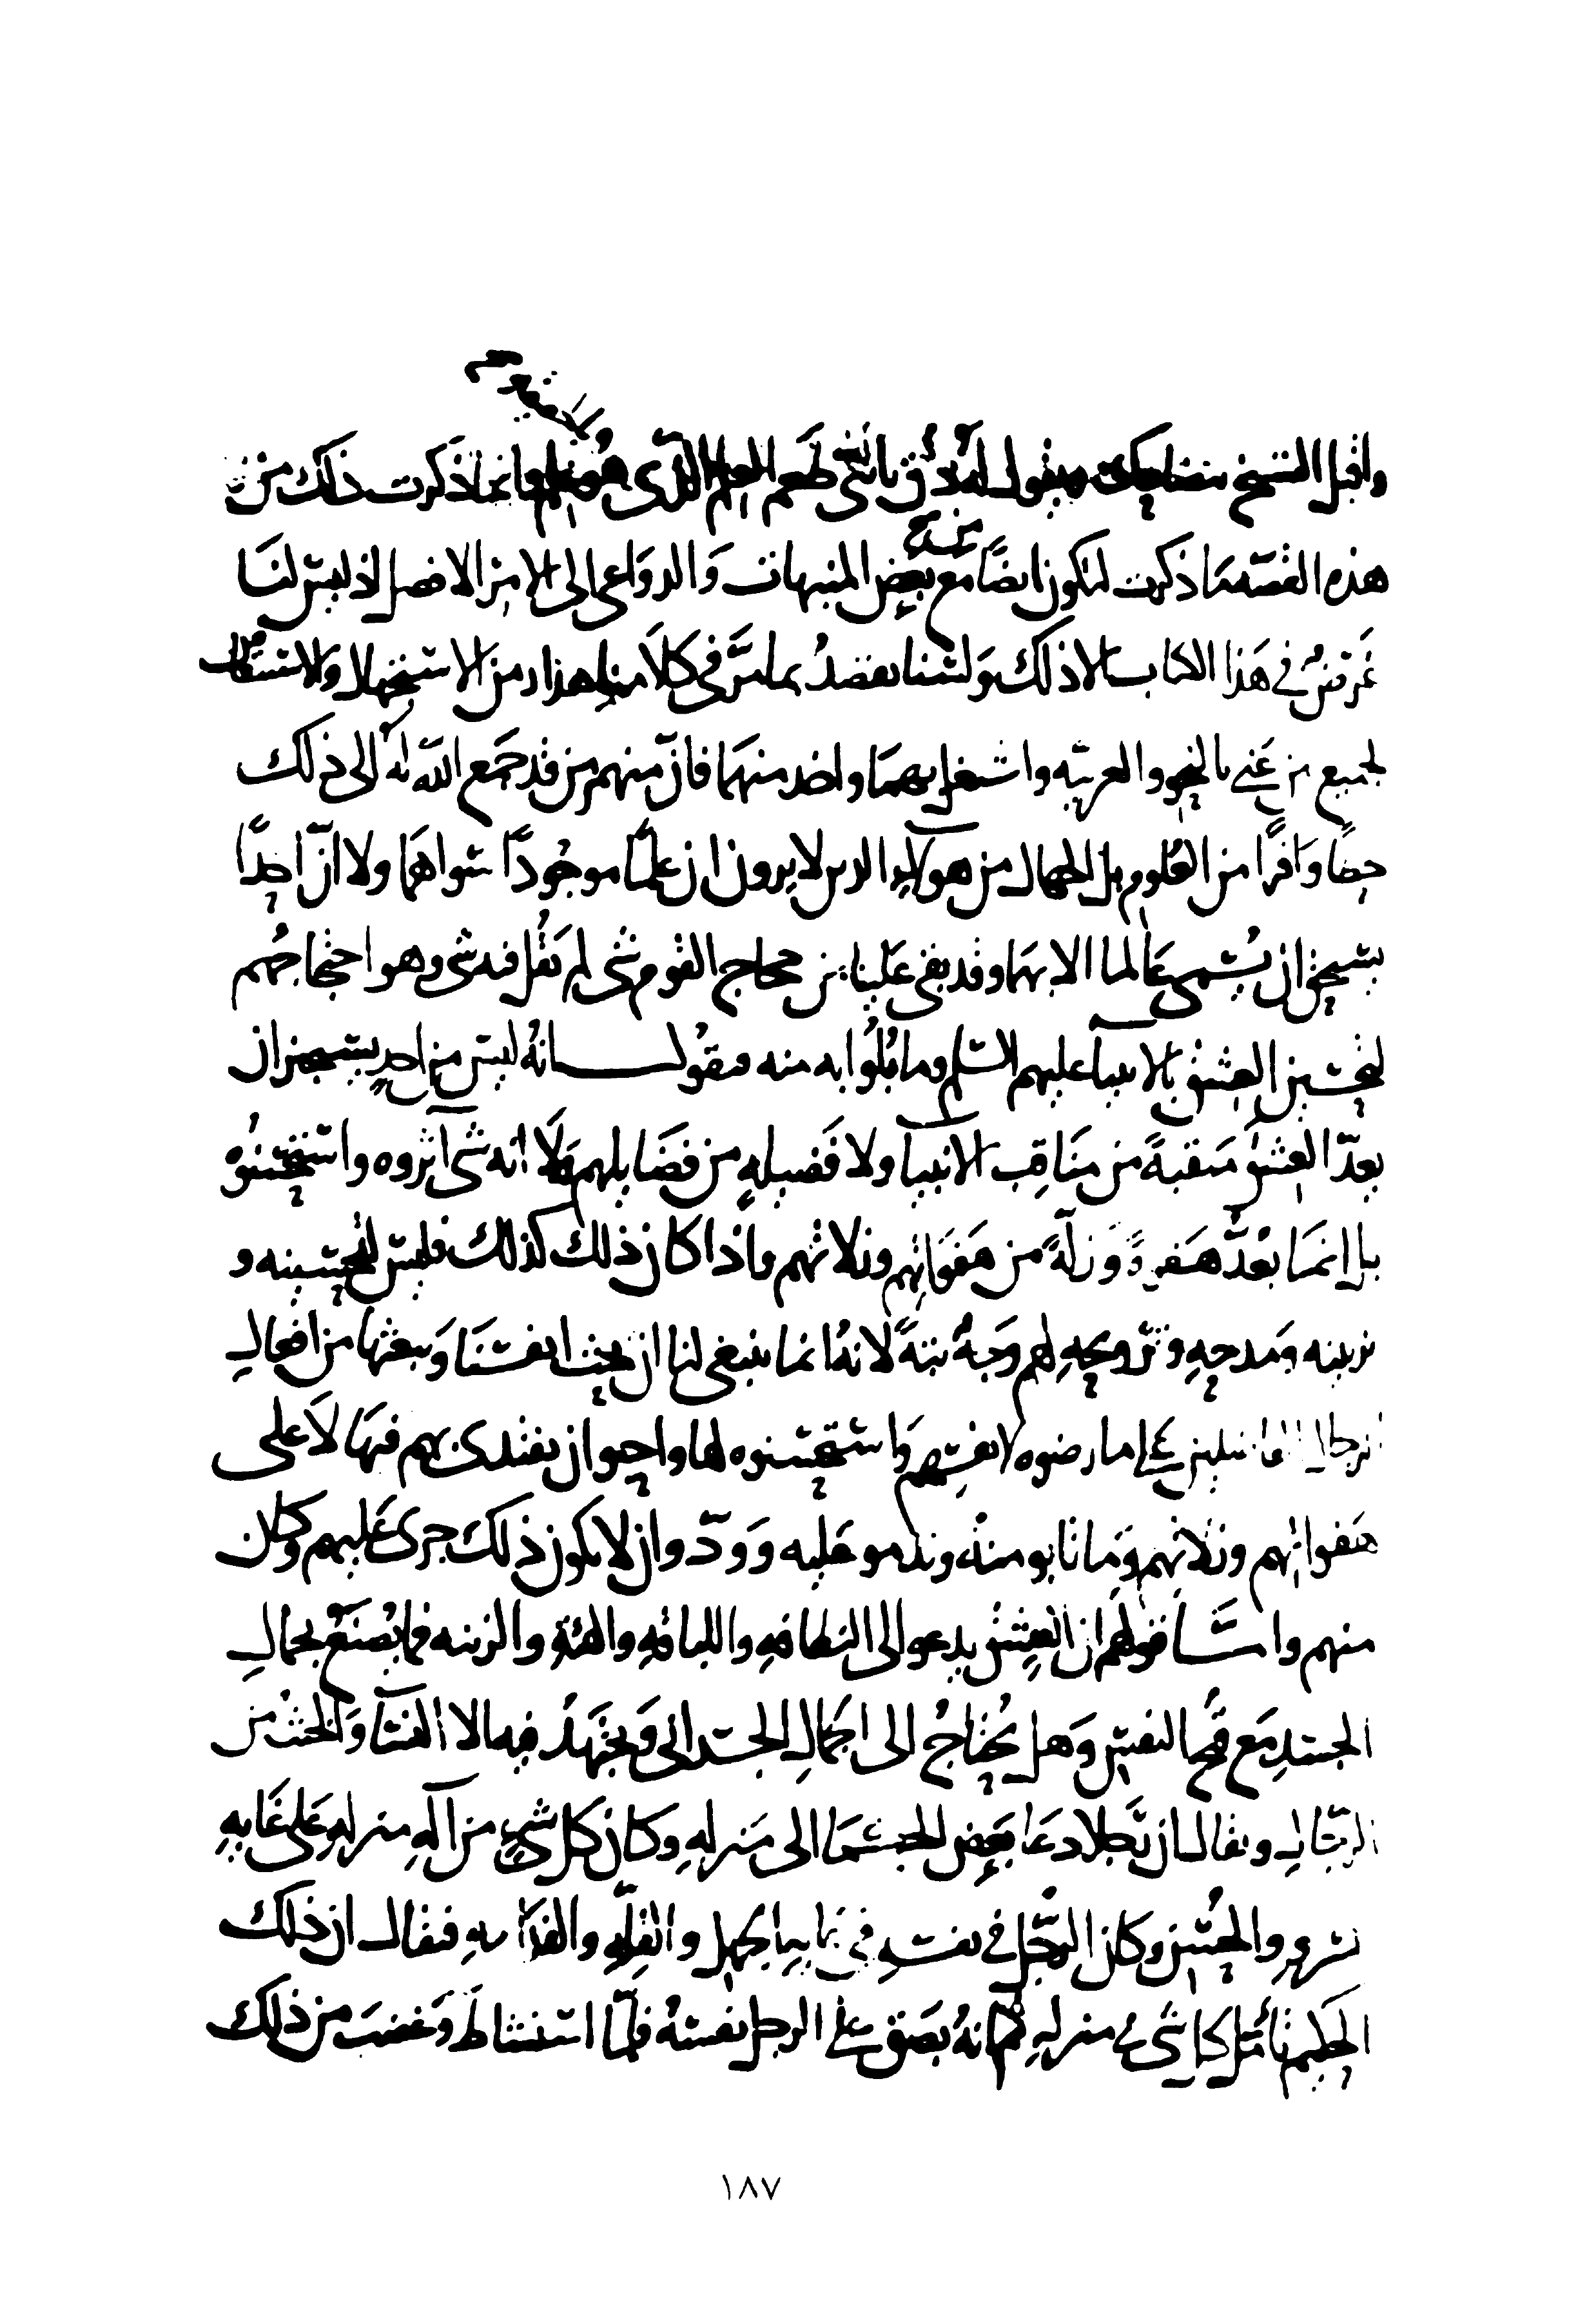 واقبل الشيخ يتضاحك ويقول له ذق يا بنى طعم العلم الذى هو علم وانما ذكرت ذلك من
هذه القصة ما ذكرت لتكون ايضا مع بعض المنبهات والدواعى الى الامر الافضل اذ ليس لنا
غرض فى هذا الكتاب الا ذلك ولسنا نقصد بما مر فى كلامنا هذا من الاستجهال والاستنقاص
لجميع من عنى بالنحو والعربية واشتغل بهما واخذ منهما فان منهم من قد جمع الله له الى ذلك
حظا وافرا من العلوم بل الجهال من هولاء الذين لا يرون ان علما موجودا سواهما ولا ان احدا
يستحق ان يسمى عالما الا بهما وقد بقى علينا من حجاج القوم شى لم نقل فيه شى وهو احتجاجهم
لتحسين العشق بالانبياء عليهم السلم وما بلوا به منه فنقول انه ليس من احد يستجيز ان
يعد العشق منقبة من مناقب الانبياء ولا فضيلة من فضايلهم ولا انه شى آثروه واستحسنوه
بل انما يعد هفوة وزلة من هفواتهم وزلاتهم واذا كان ذلك كذلك فليس لتحسينه و
تزيينه ومدحه وترويجه لهم وجه بتة لانه انما ينبغى لنا ان نحث انفسنا ونبعثها من افعال
الرجال الفاضلين على ما رضوه لانفسهم واستحسنوه لها واحبوا ان يقتدى بهم فيها لا على
هفواتهم وزلاتهم وما تابو منه وندمو عليه وودوا ان لا يكون ذلك جرى عليهم وكان
منهم واما قولهم ان العشق يدعو الى النظافة واللباقة والهيئة والزينة فما يصنع بجمال
الجسد مع قبح النفس وهل يحتاج الى الجمال الجسدانى ويجتهد فيه الا النساء والخنث من
الرجال ويقال ان رجلا دعا بعض الحكما الى منزله وكان كل شى من آلة منزله على غاية
السرو والحسن وكان الرجل فى نفسه فى غاية الجهل والبله والفدامة فيقال ان ذلك
الحكيم تأمل كل شى فى منزله ثم انه بصق على الرجل نفسه فلما استشاط وغضب من ذلك
١٨٧